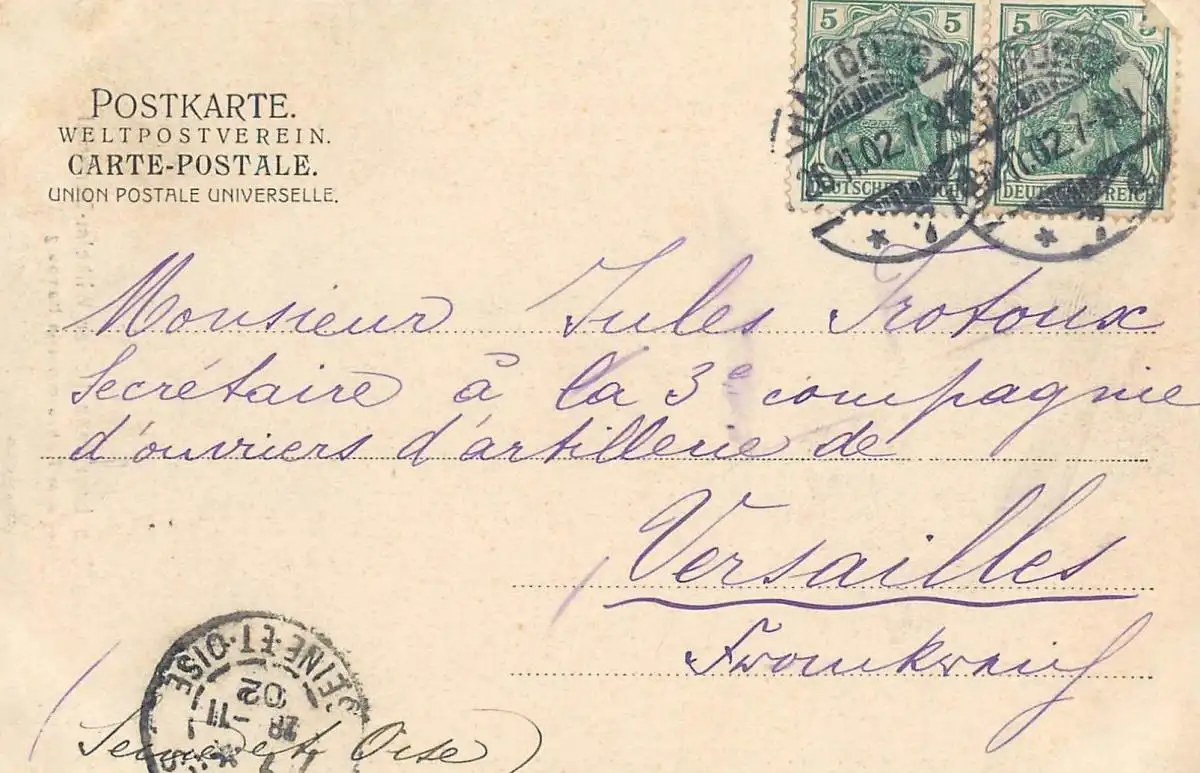 POSTKARTE.
WELTPOSTVEREIN.
CARTE-POSTALE.
UNION POSTALE UNIVERSELLE.
5 5 5 5
DEUTSCHES REICH DEUTSCHES REICH
HAMBURG
26.11.02. 7-8N
Monsieur Jules Trotoux
Secrétaire à la 3e compagnie
d'ouvriers d'artillerie de
Versailles
Frankreich
SEINE-ET-OISE
28 -11
02
(Seine et Oise)